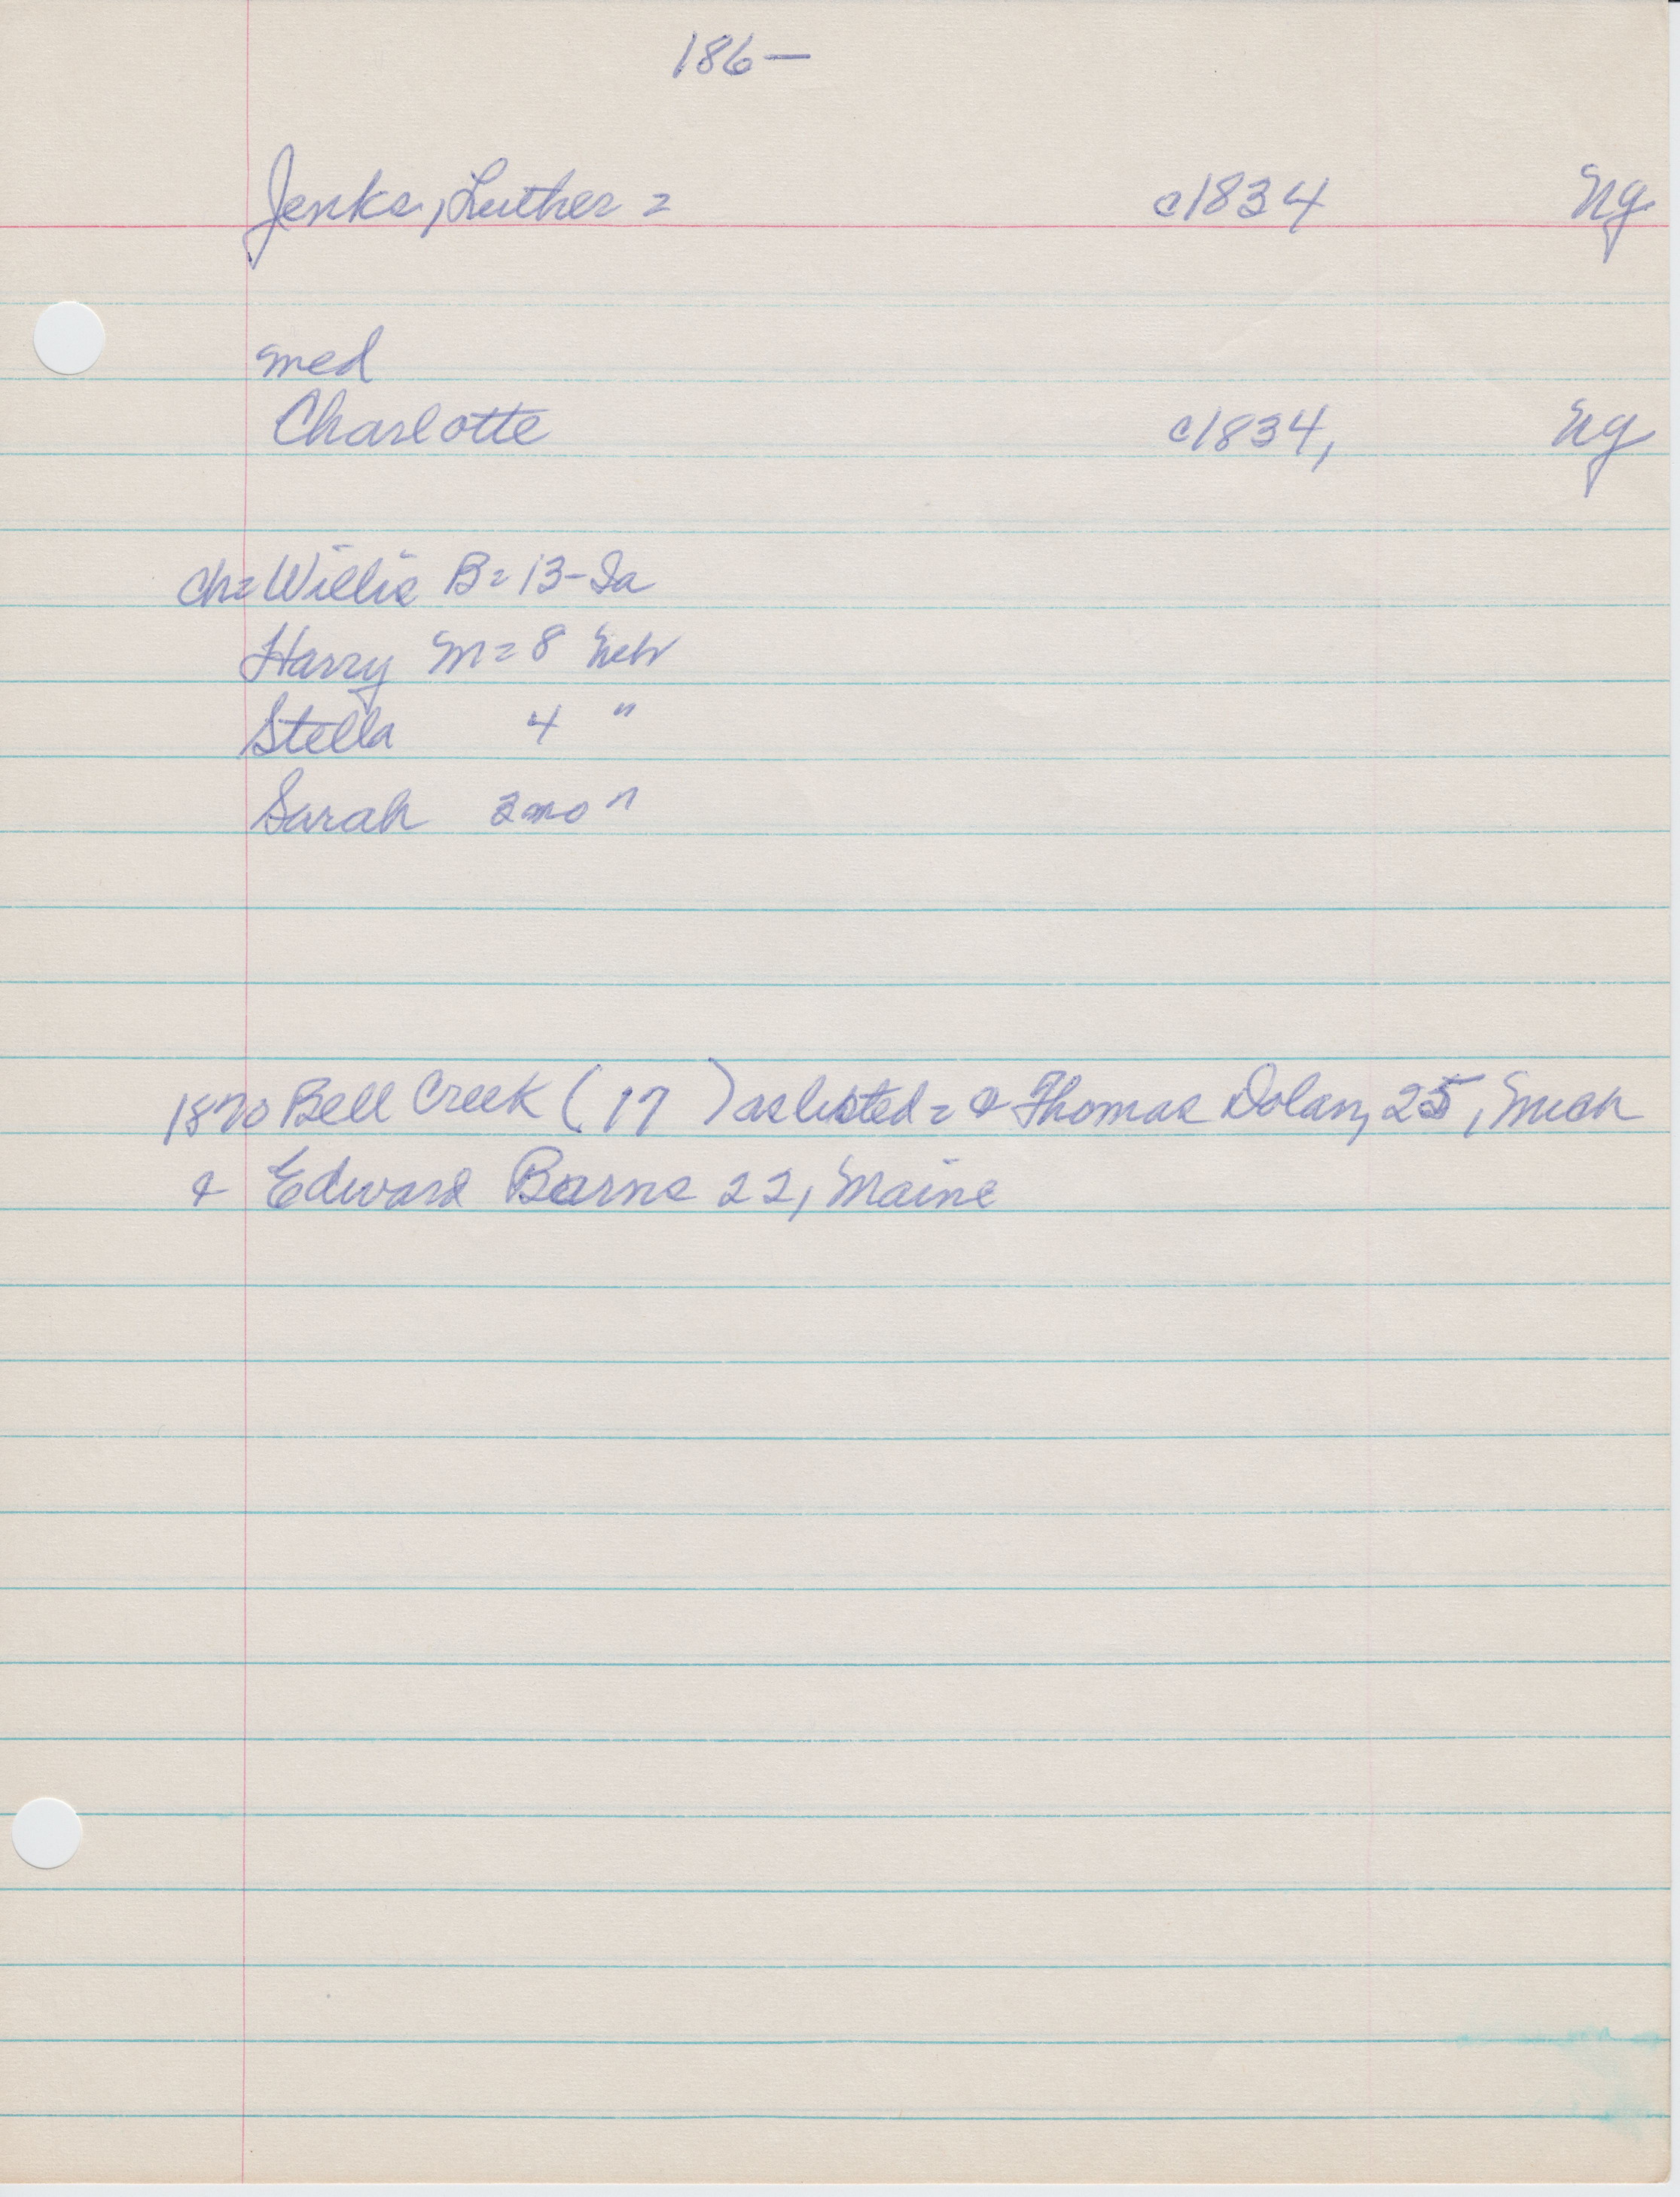 186—
Jenks, Luther = c1834 Ny
med
Charlotte c1834, Ny
ch= Willis B= 13-Ia
Harry M= 8 Neb
Stella 4 "
Sarah 2mo "
1870 Bell Creek (17 ) as listed = & Thomas Dolan, 25, Mich
& Edward Barns 22, Maine